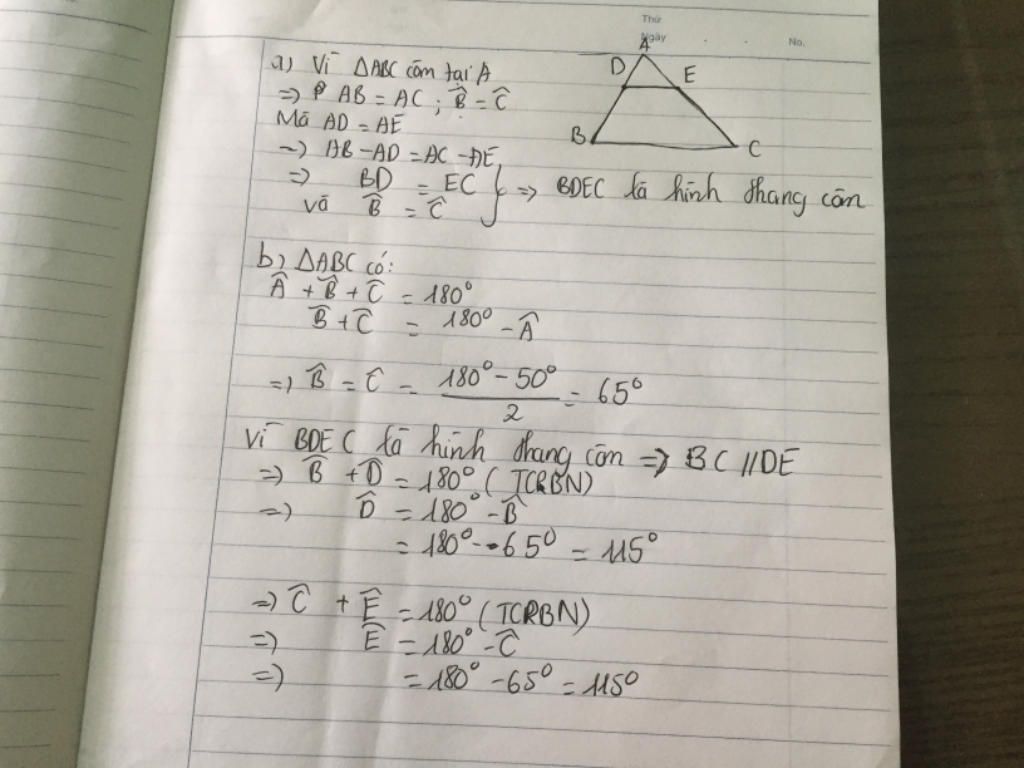 Thứ
Ngày
No.
A
D
E
B
C
a) Vì ΔABC cân tại A
=> AB = AC ; B̂ = Ĉ
Mà AD = AE
=> AB - AD = AC - AE
=> BD = EC
và B̂ = Ĉ } => BDEC là hình thang cân
b) ΔABC có:
Â + B̂ + Ĉ = 180°
B̂ + Ĉ = 180° - Â
=> B̂ = Ĉ = (180° - 50°)/2 = 65°
Vì BDEC là hình thang cân => BC // DE
=> B̂ + D̂ = 180° (TCRBN)
=> D̂ = 180° - B̂
= 180° - 65° = 115°
=> Ĉ + Ê = 180° (TCRBN)
=> Ê = 180° - Ĉ
=> = 180° - 65° = 115°